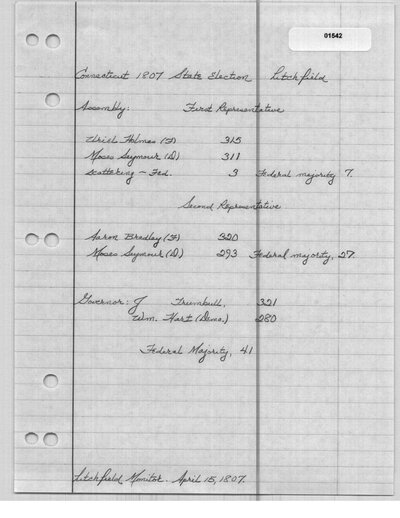 01542
Connecticut 1807 State Election Litchfield
Assembly: First Representative
Uriel Holmes (F) 315
Moses Seymour (D) 311
Scattering - Fed. 3 Federal majority 7.
Second Representative
Aaron Bradley (F) 320
Moses Seymour (D) 293 Federal majority, 27.
Governor: J Trumbull, 321
Wm. Hart (Demo.) 280
Federal Majority, 41
Litchfield Monitor. April 15, 1807.